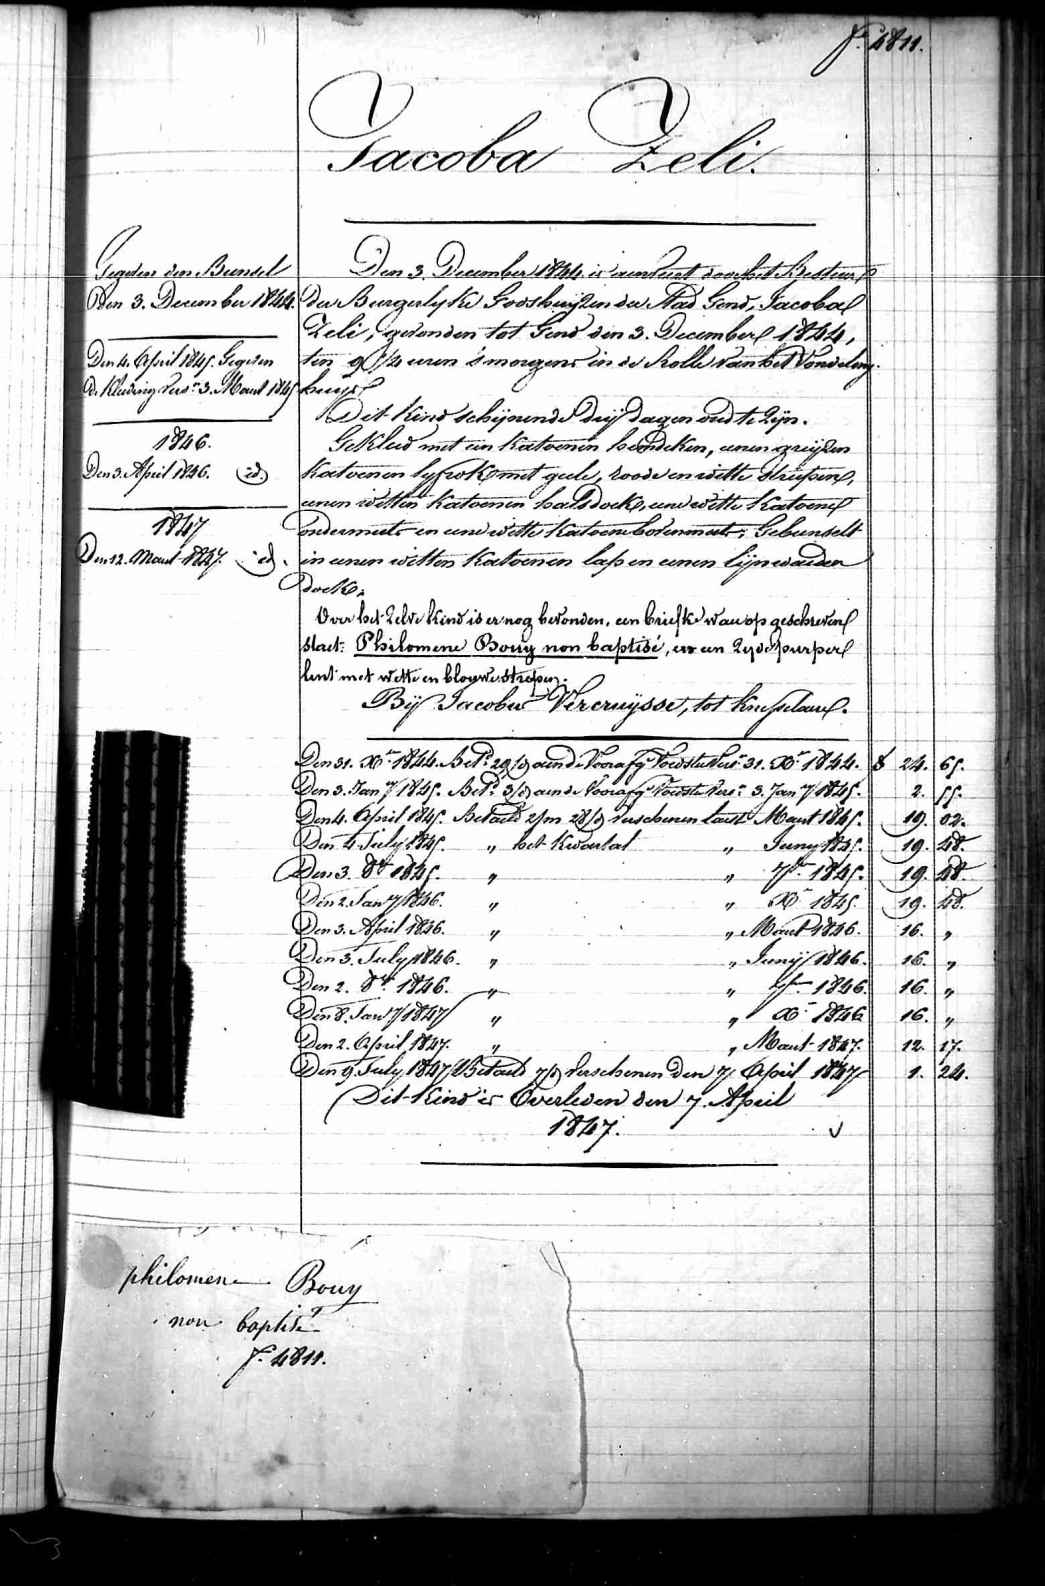 f.º 4811.
Jacoba Zeli.
Gegeven den Bunsel
Den 3. December 1844.
Den 4. April 1845. Gegeven
de Kleeding vers.n 3. Maart 1845
1846.
Den 3. April 1846. id.
1847
Den 12. Maart 1847. id.
Den 3. December 1844 is aenveert door het Bestuur
der Burgerlyke Godshuijzen der Stad Gend, Jacoba
Zeli, gevonden tot Gend den 3. December 1844,
ten 9 1/2 uren 's morgens in de Rolle van het Vondeling
huys
Dit kind schijnende drij dagen oud te zijn.
Gekleed met een katoenen hemdeken, eenen grijzen
katoenen lyfrok met geele, roode en witte streepen,
eenen witten katoenen halsdoek, eene witte katoene
ondermuts en eene witte katoene bovenmuts; Gebunselt
in eenen witten katoenen lap en eenen lijnwaeden
doek.
Over het zelve kind is er nog bevonden, een briefke waerop geschreven
staet: Philomene Bouy non baptisé, en een zyde purper
lint met witte en blouwe strepen.
Bij Jacobus Vercruijsse, tot Knesselaere.
Den 31. Xb.r 1844. Bet.d 29/d aende Voorafg.e Voedster Vers.n 31. Xb.r 1844. f 24. 65.
Den 3. Jan.y 1845. Bet.d 3/d aende Voorafg.e Voedster Vers.n 3. Jan.y 1845. 2. 55.
Den 4. April 1845. Betaeld 2/m 28/d verschenen laest Maert 1845. 19. 02.
Den 4. July 1845. „ het kwartal „ Juny 1845. 19. 48.
Den 3. 8b.r 1845. „ „ 7b.r 1845. 19. 48.
Den 2. Jan.y 1846. „ „ Xb.r 1845. 19. 48.
Den 3. April 1846. „ „ Maert 1846. 16. „
Den 3. July 1846. „ „ Junij 1846. 16. „
Den 2. 8b.r 1846. „ „ 7b.r 1846. 16. „
Den 8. Jan.y 1847 „ „ Xb.r 1846 16. „
Den 2. April 1847. „ „ Maert 1847. 12. 17.
Den 9. July 1847 Betaeld 7/d verschenen den 7 April 1847 1. 24.
Dit kind is Overleden den 7. April
1847.
philomene Bouy
non baptisé
f.º 4811.